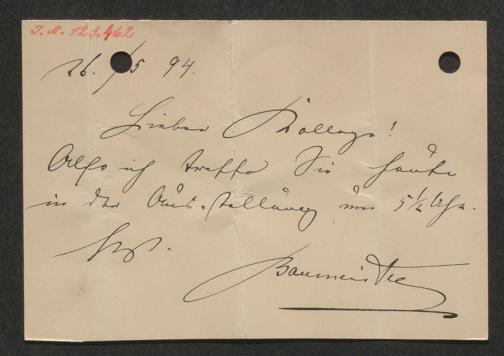 I.N. 123.462
26./5 94.
Lieber Kollege!
Also ich treffe Sie heute
in der Ausstellung um 5 1/2 Uhr.
Baumeister